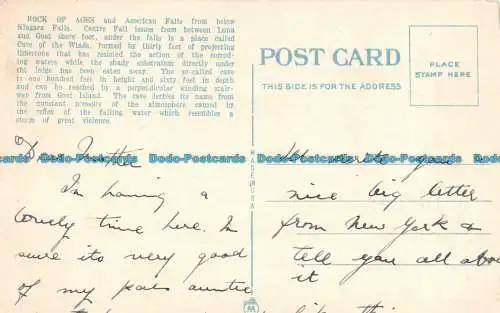 ROCK OF AGES and American Falls from below
Niagara Falls. Centre Fall issues from between Luna
and Goat shore feet, under the falls is a place called
Cave of the Winds, formed by thirty feet of projecting
limestone that has resisted the action of the corrod-
ing waters while the shaly substratum directly under
the ledge has been eaten away. The so-called cave
is one hundred feet in height and sixty feet in depth
and can be reached by a perpendicular winding stair-
way from Goat Island. The cave derives its name from
the constant of the atmosphere caused by
the reflex of the falling water which resembles a
storm of great violence.
POST CARD
THIS SIDE IS FOR THE ADDRESS
PLACE
STAMP HERE
I'm having a
lovely time here. I'm
sure its very good
of my pals auntie
MADE IN U.S.A.
write you
nice big letter
from New York &
tell you all about
it
like this
Dodo-Postcards Dodo-Postcards Dodo-Postcards Dodo-Postcards